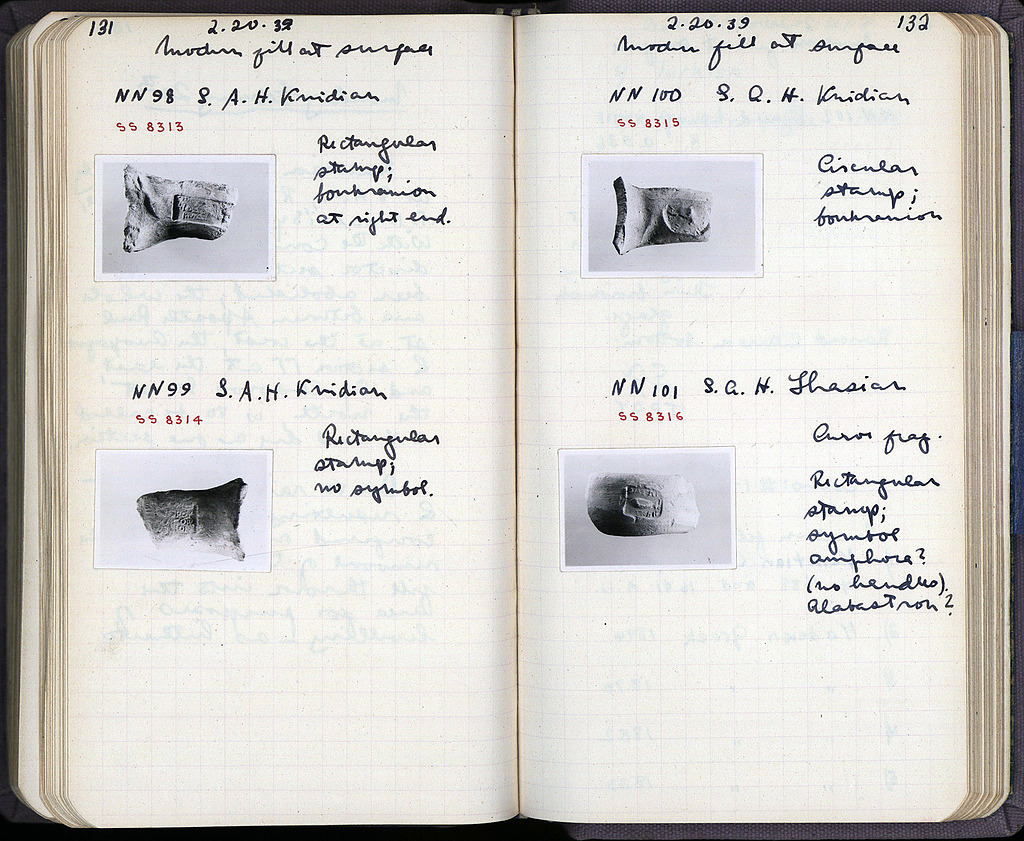 131
2.20.39
Modern fill at surface
NN 98 S. A. H. Knidian
SS 8313
Rectangular
stamp;
boukranion
at right end.
NN 99 S. A. H. Knidian
SS 8314
Rectangular
stamp;
no symbol.
2.20.39
132
Modern fill at surface
NN 100 S. A. H. Knidian
SS 8315
Circular
stamp;
boukranion
NN 101 S. A. H. Thasian
SS 8316
Curve frag.
Rectangular
stamp;
symbol
amphora?
(no handles).
Alabastron?